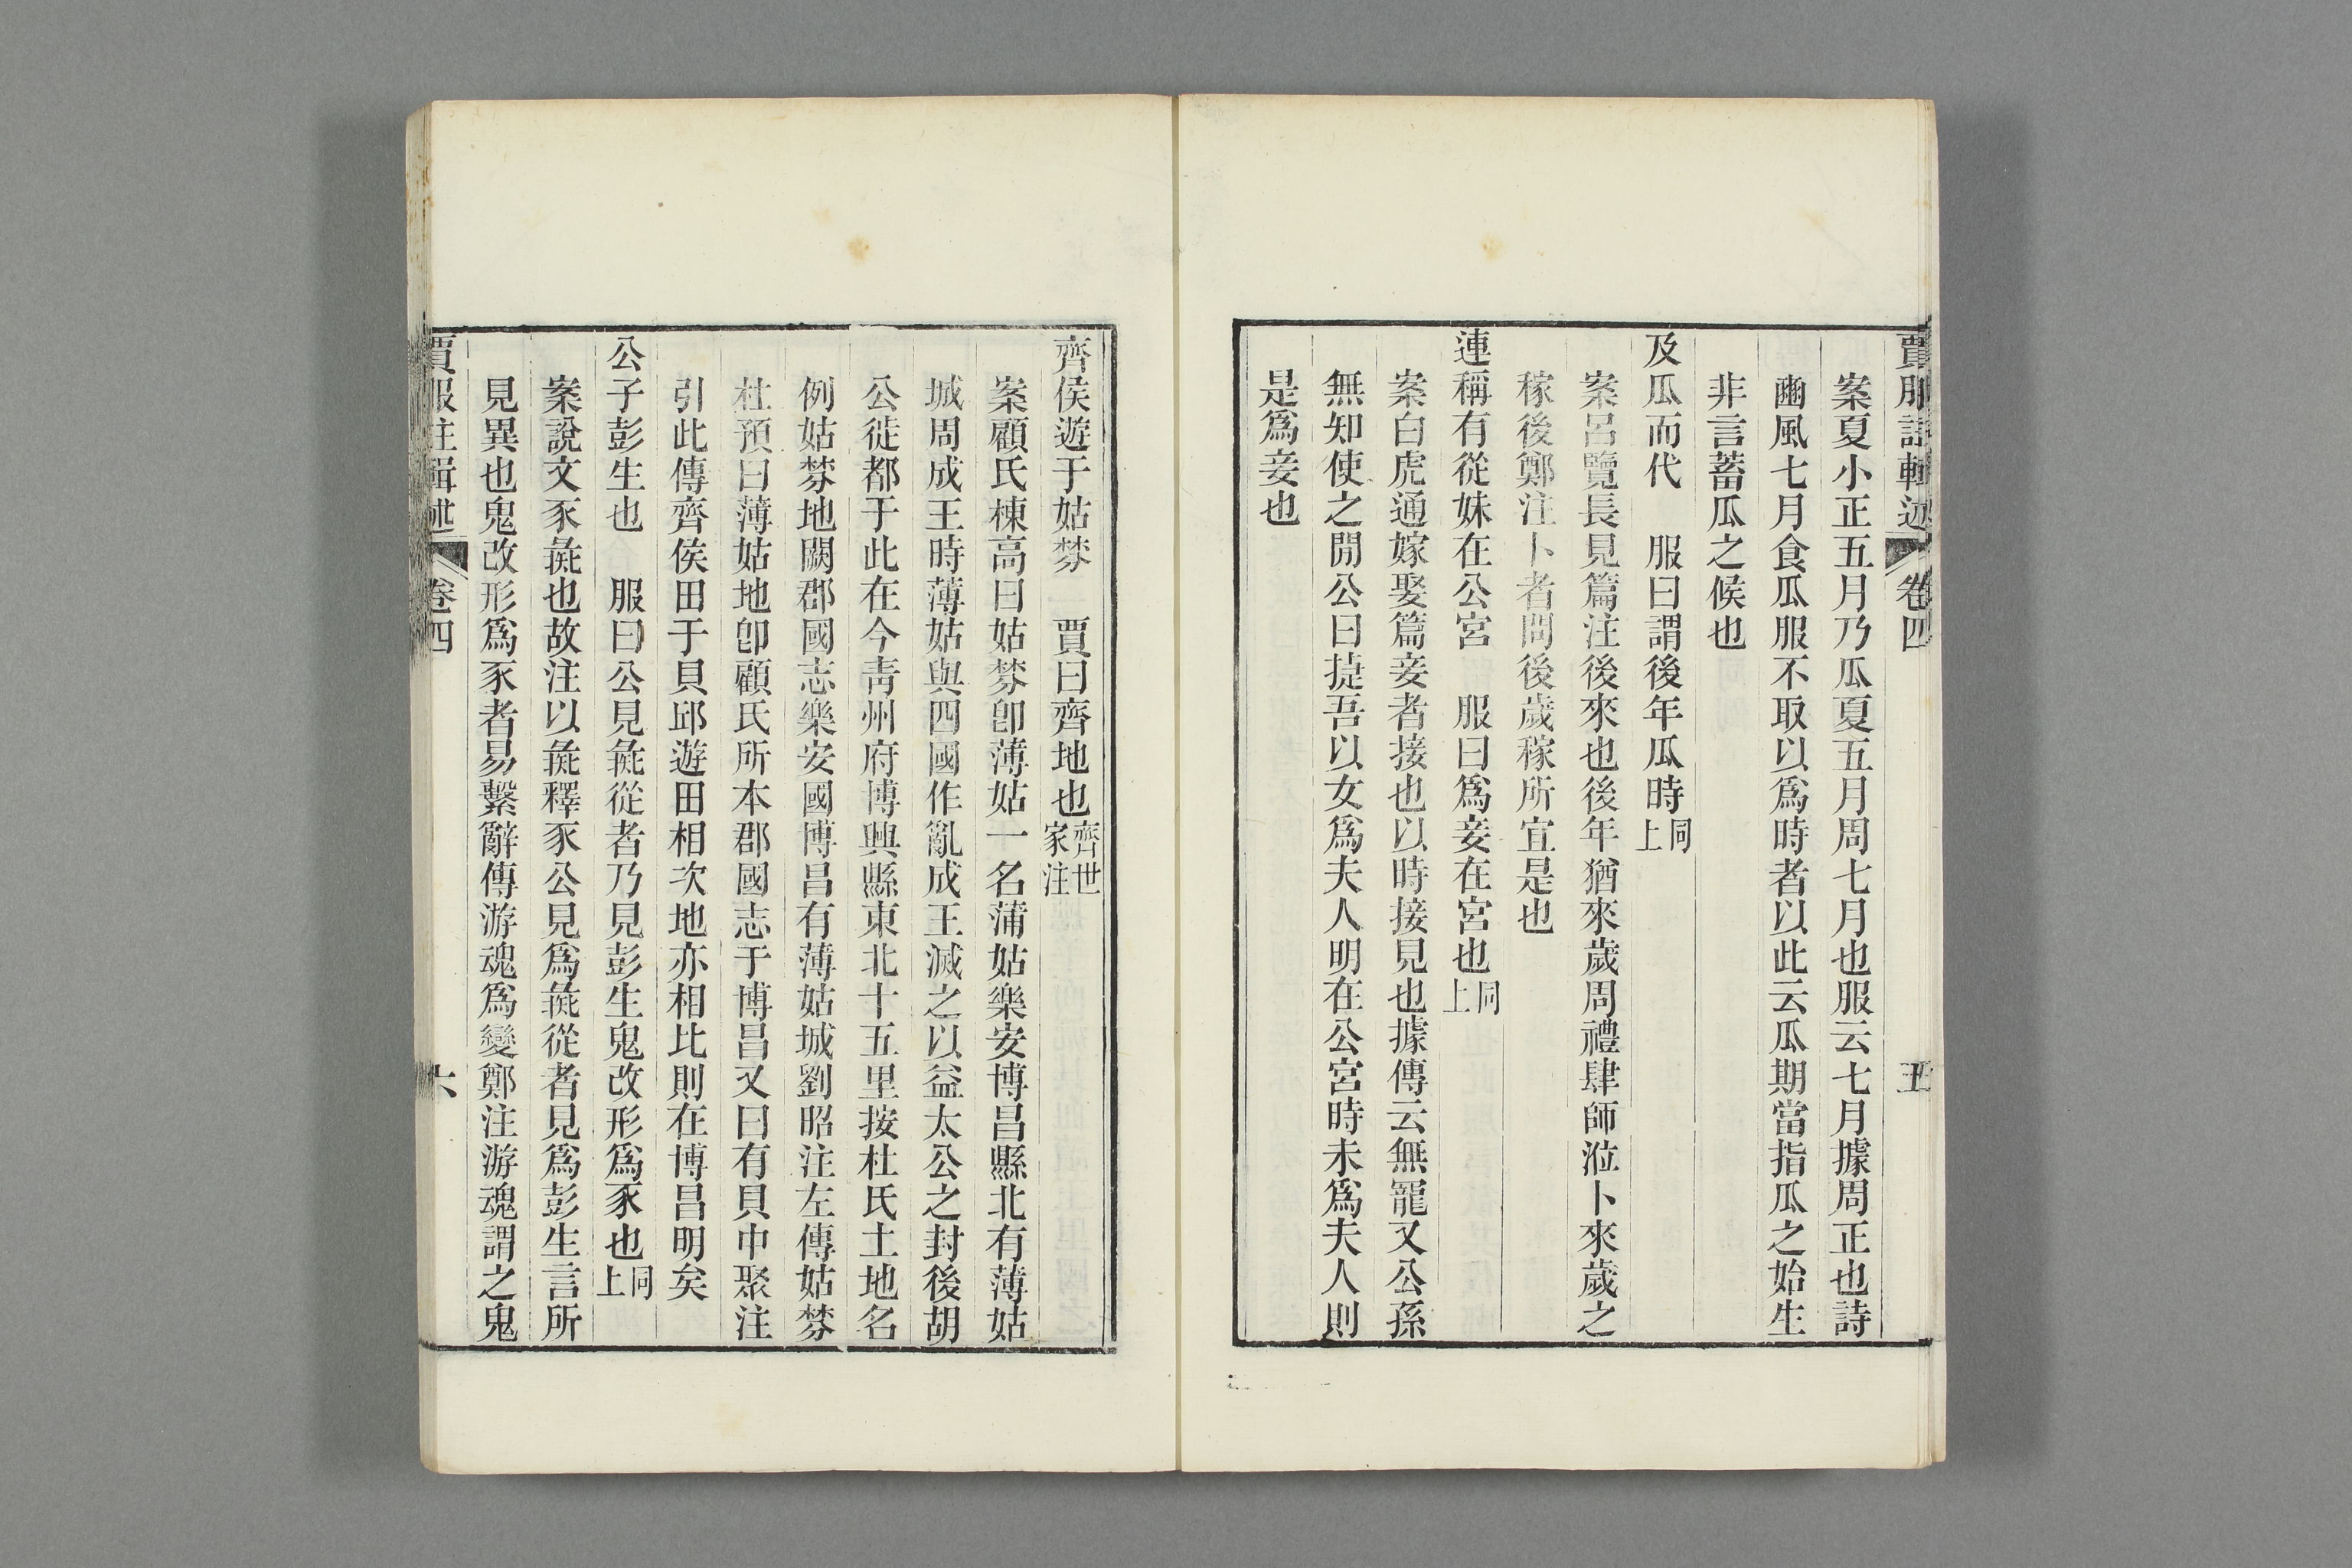 賈服注輯述 卷四 五
案夏小正五月乃瓜夏五月周七月也服云七月據周正也詩
豳風七月食瓜服不取以爲時者以此云瓜期當指瓜之始生
非言蓄瓜之候也
及瓜而代 服曰謂後年瓜時同上
案呂覽長見篇注後來也後年猶來歲周禮肆師涖卜來歲之
稼後鄭注卜者問後歲稼所宜是也
連稱有從妹在公宮 服曰爲妾在宮也同上
案白虎通嫁娶篇妾者接也以時接見也據傳云無寵又公孫
無知使之閒公曰㨗吾以女爲夫人明在公宮時未爲夫人則
是爲妾也
齊侯遊于姑棼 賈曰齊地也齊世家注
案顧氏棟高曰姑棼卽薄姑一名蒲姑樂安博昌縣北有薄姑
城周成王時薄姑與四國作亂成王滅之以益太公之封後胡
公徙都于此在今靑州府博興縣東北十五里按杜氏土地名
例姑棼地闕郡國志樂安國博昌有薄姑城劉昭注左傳姑棼
杜預曰薄姑地卽顧氏所本郡國志于博昌又曰有貝中聚注
引此傳齊侯田于貝邱遊田相次地亦相比則在博昌明矣
公子彭生也 服曰公見彘從者乃見彭生鬼改形爲豕也同上
案說文豕彘也故注以彘釋豕公見爲彘從者見爲彭生言所
見異也鬼改形爲豕者易繫辭傳游魂爲變鄭注游魂謂之鬼
賈服注輯述 卷四 六